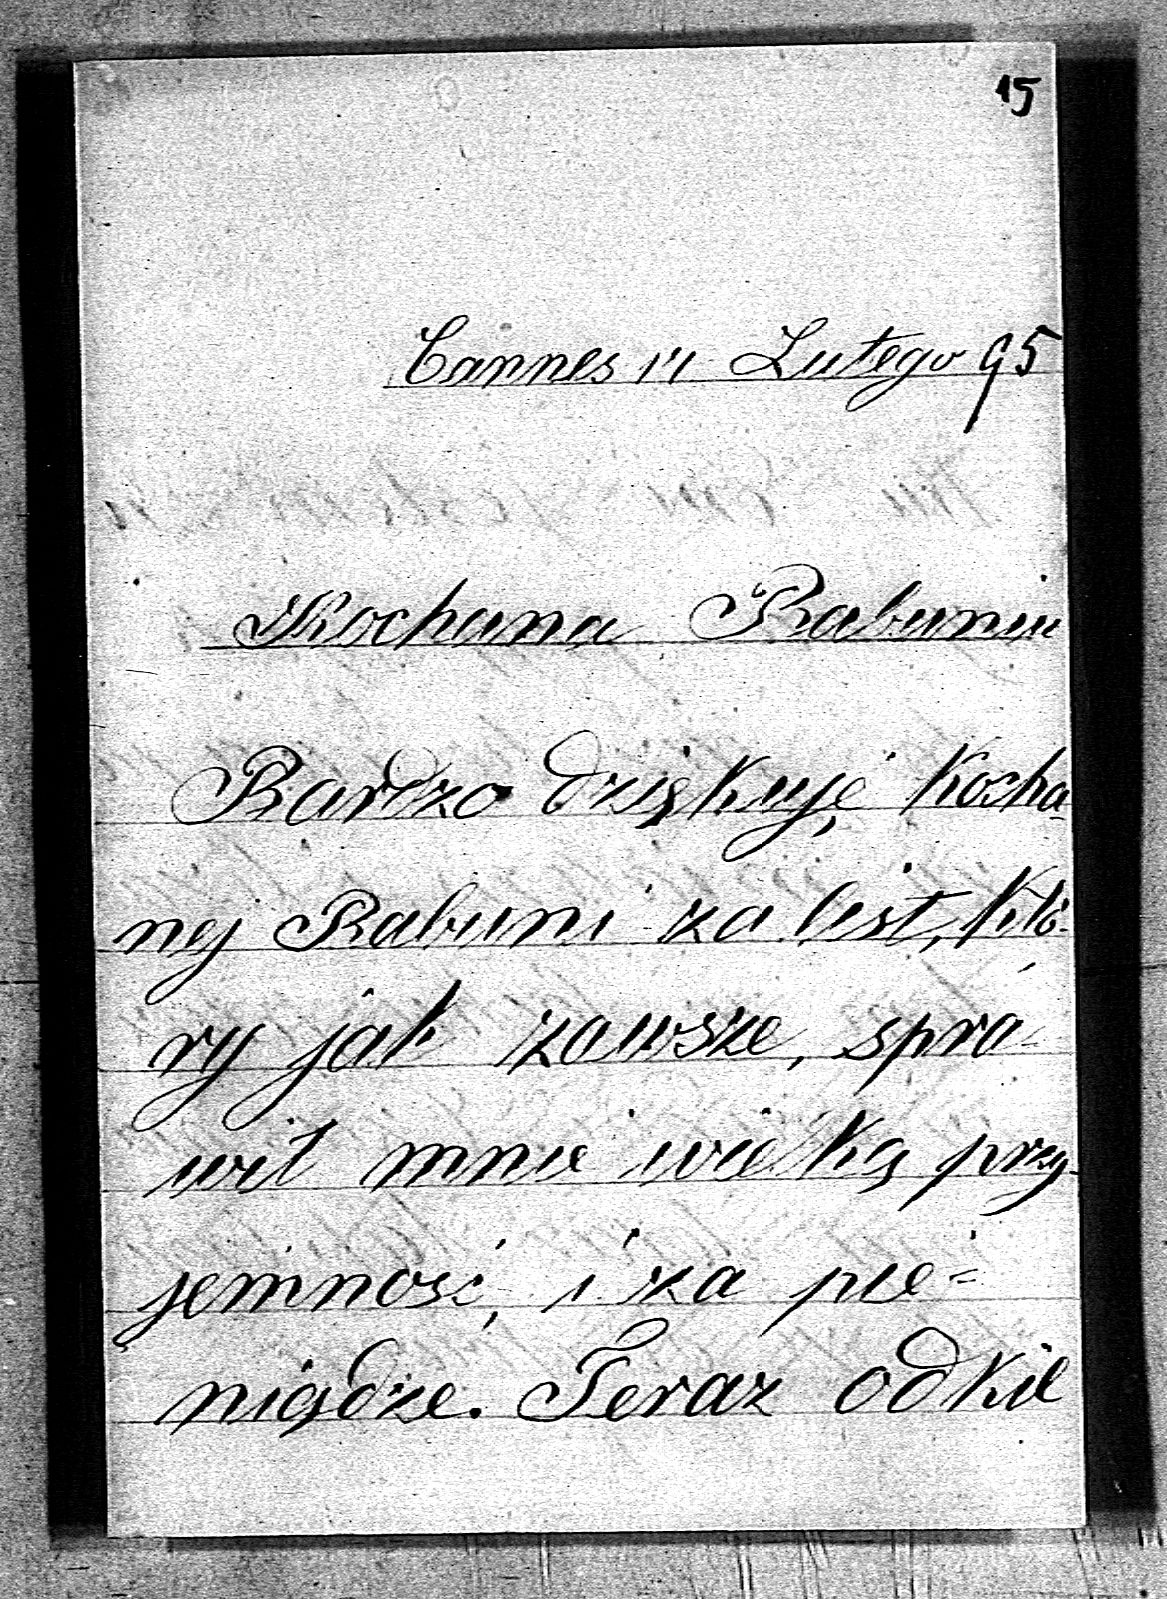 15
Cannes 14 Lutego 95
Kochana Babuniu
Bardzo dziękuję Kocha-
nej Babuni za list, któ-
ry jak zawsze, spra-
wił mnie wielką przy-
jemność, i za pie-
niądze. Teraz od kil